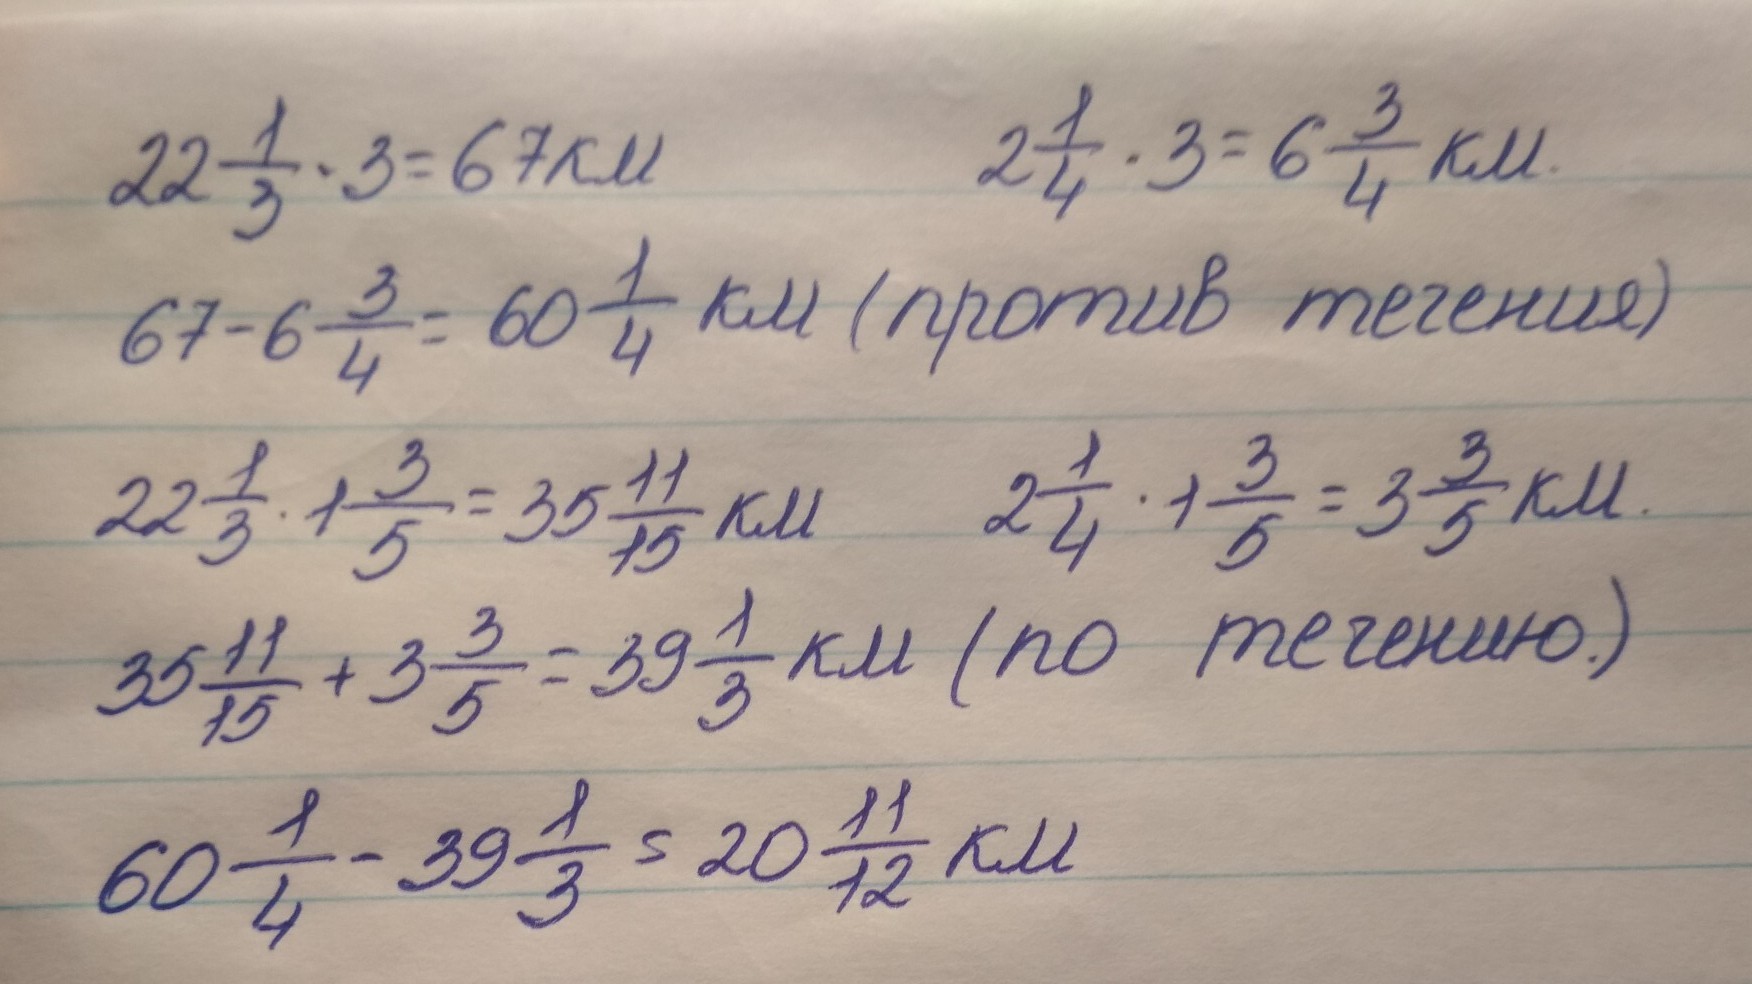 22 1/3 · 3 = 67 км 2 1/4 · 3 = 6 3/4 км.
67 - 6 3/4 = 60 1/4 км (против течения)
22 1/3 · 1 3/5 = 35 11/15 км 2 1/4 · 1 3/5 = 3 3/5 км.
35 11/15 + 3 3/5 = 39 1/3 км (по течению.)
60 1/4 - 39 1/3 = 20 11/12 км